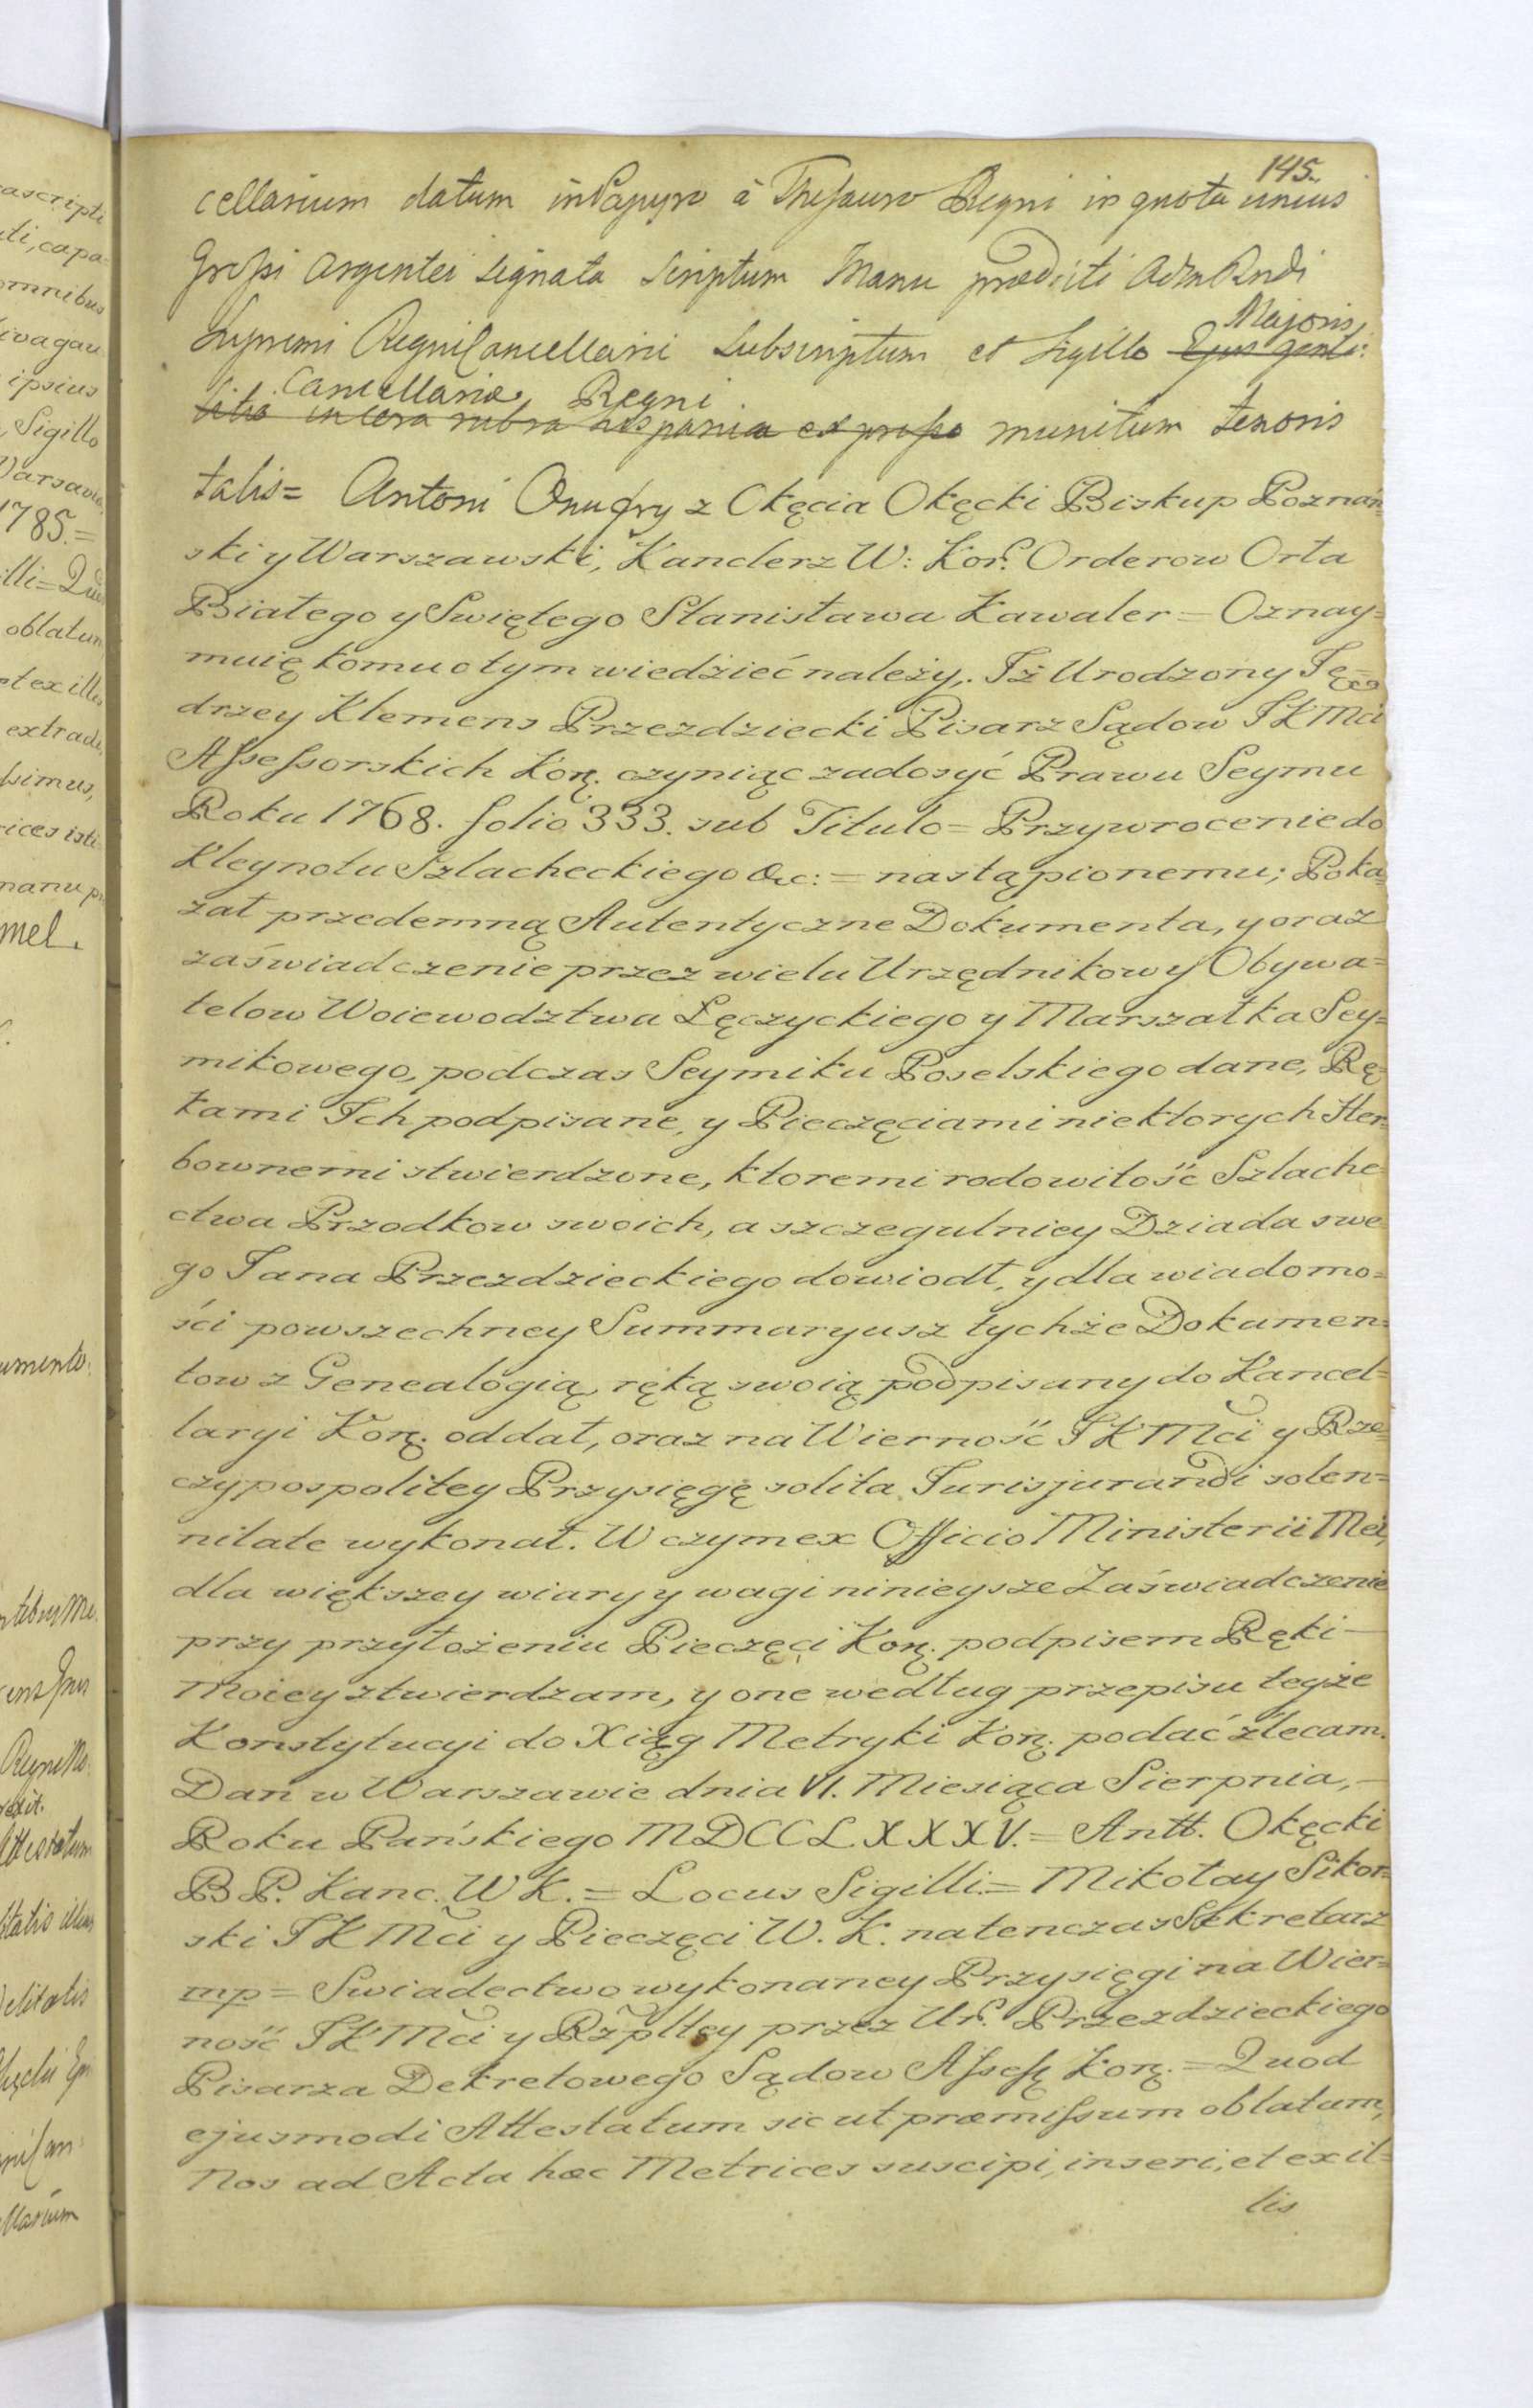 145.
cellarium datum in Papyro à Thesauro Regni in quota unius
Grossi Argentei signata Scriptum Manu prædicti Adm Rndi
Supremi Regni Cancellarii Subscriptum et Sigillo Ejus genti: Majoris
litio in cera rubra hispanica expresso Cancellariæ Regni munitum tenoris
talis = Antoni Onufry z Okęcia Okęcki Biskup Poznań=
ski y Warszawski, Kanclerz W: Kor. Orderow Orła
Białego y Swiętego Stanisława Kawaler = Oznay=
muię komu o tym wiedzieć należy, Iż Urodzony Ję=
drzey Klemens Przezdziecki Pisarz Sądow JKMci
Assessorskich Kor. czyniąc zadosyć Prawu Seymu
Roku 1768. folio 333. sub Titulo = Przywrocenie do
Kleynotu Szlacheckiego &c: = nastąpionemu; Poka=
zał przedemną Autentyczne Dokumenta, y oraz
zaświadczenie przez wielu Urzędnikow y Obywa=
telow Woiewodztwa Łęczyckiego y Marszałka Sey=
mikowego, podczas Seymiku Poselskiego dane, Rę=
kami Ich podpisane, y Pieczęciami niektorych Her=
bownemi stwierdzone, ktoremi rodowitość Szlache=
ctwa Przodkow swoich, a szczegulniey Dziada swe=
go Jana Przezdzieckiego dowiodł, y dla wiadomo=
ści powszechney Summaryusz tychże Dokumen=
tow z Genealogią, ręką swoią podpisany do Kancel=
laryi Kor. oddał, oraz na Wierność JKMci y Rze=
czypospolitey Przysięgę solita Jurisjurandi solen=
nitate wykonał. W czym ex Officio Ministerii Mei,
dla większey wiary y wagi ninieysze Zaświadczenie
przy przyłożeniu Pieczęci Kor. podpisem Ręki —
Moiey ztwierdzam, y one według przepisu tegże
Konstytucyi do Xiąg Metryki Kor. podać zlecam.
Dan w Warszawie dnia VI. Miesiąca Sierpnia, —
Roku Pańskiego MDCCLXXXV. = Antt. Okęcki
B P. Kanc. W K. = Locus Sigilli = Mikołay Sikor=
ski JKMci y Pieczęci W. K. natenczas Sekretarz
mp = Swiadectwo wykonaney Przysięgi na Wier=
ność JKMci y Rzpltey przez Ur. Przezdzieckiego
Pisarza Dekretowego Sądow Assess. Kor. = Quod
ejusmodi Attestatum sic ut præmissum oblatum,
Nos ad Acta hæc Metrices suscipi, inseri, et ex il=
lis